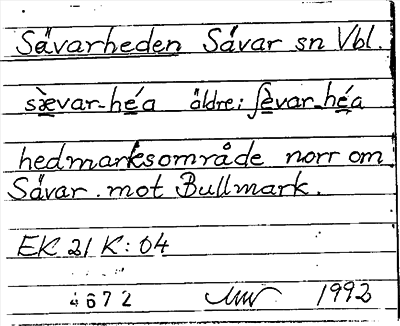 Sävarheden Sävar sn Vbl.
sæ̀var-héa äldre: ʃèvar-héa
hedmarksområde norr om
Sävar mot Bullmark.
EK 21 K: 04
4672 1992